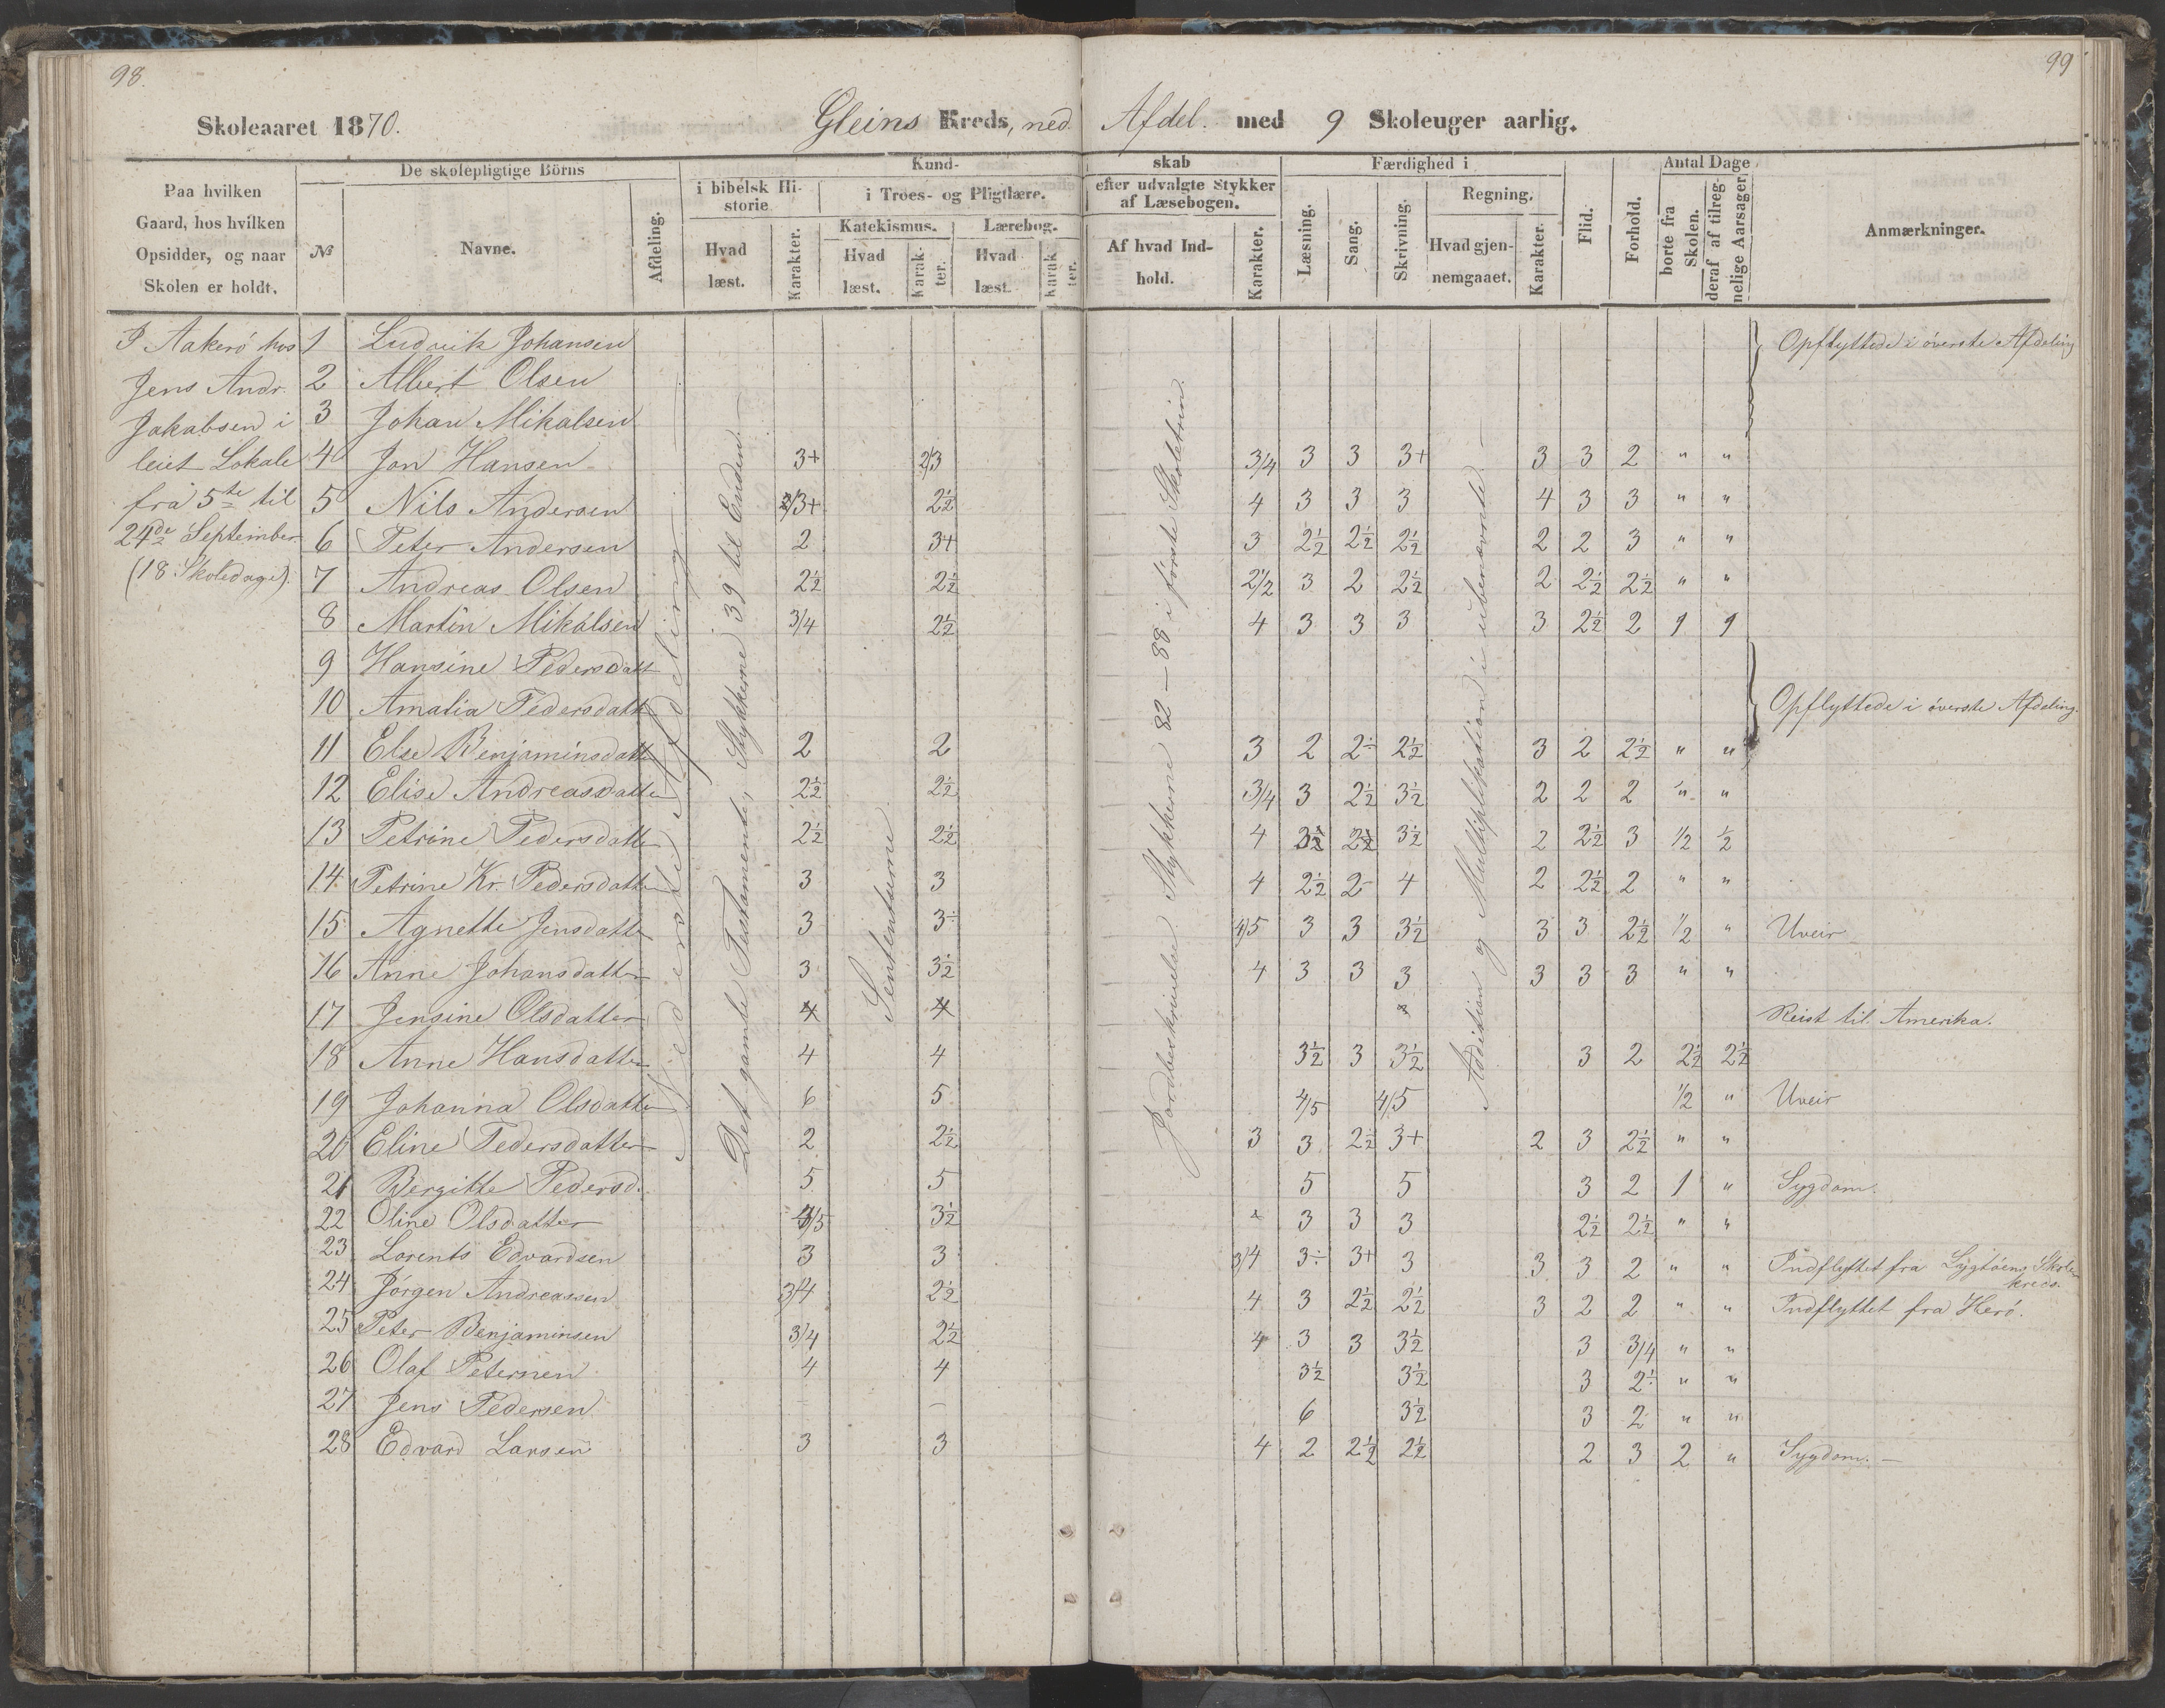 98.
99
Skoleaaret 1870. Gleins Kreds, ned. Afdel. med 9 Skoleuger aarlig.
Paa hvilken Gaard, hos hvilken Opsidder, og naar Skolen er holdt.
De skolepligtige Börns
№ Navne. Afdeling.
Kundskab
i bibelsk Historie
Hvad læst. Karakter.
i Troes- og Pligtlære.
Katekismus. Hvad læst. Karakter.
Lærebog. Hvad læst. Karakter.
efter udvalgte Stykker af Læsebogen.
Af hvad Indhold. Karakter.
Færdighed i
Læsning. Sang. Skrivning.
Regning. Hvad gjennemgaaet. Karakter.
Flid. Forhold.
Antal Dage
borte fra Skolen. deraf af tilregnelige Aarsager.
Anmærkninger.
I Aakerö hos
Jens Andr.
Jakabsen i
leiet Lokale
fra 5te til
24de September
(18 Skoledage).
Nederste Afdeling
Det gamle Testamente, Stykkerne 39 til Enden.
Sententserne
Jordbeskrivelse Stykkerne 82 – 88 i förste Skoletrin.
Addition og Multiplikation i ubenævnte
1 Ludvik Johansen Opflyttede i överste Afdeling
2 Albert Olsen
3 Johan Mikalsen
4 Jon Hansen 3+ 2/3 3/4 3 3 3+ 3 3 2 " "
5 Nils Andersen 3+ 2½ 4 3 3 3 4 3 3 " "
6 Peter Andersen 2 3+ 3 2½ 2½ 2½ 2 2 3 " "
7 Andreas Olsen 2½ 2½ 2½ 3 2 2½ 2 2½ 2½ " "
8 Martin Mikalsen 3/4 2½ 4 3 3 3 3 2½ 2 1 1
9 Hansine Pedersdatt
10 Amalia Pedersdatt Opflyttede i överste Afdeling.
11 Else Benjaminsdatte 2 2 3 2 2÷ 2½ 3 2 2½ " "
12 Elise Andreasdatte 2½ 2½ 3/4 3 2½ 3½ 2 2 2 " "
13 Petrine Pedersdatte 2½ 2½ 4 3½ 2 2½ 3 ½ ½
14. Petrine Kr. Pedersdatte 3 3 4 2½ 2- 4 2 2½ 2 " "
15 Agnette Jensdatte 3 3÷ 4/5 3 3 3½ 3 3 2½ ½ " Uveir
16 Anne Johansdatter 3 3½ 4 3 3 3 3 3 3 " "
17 Jensine Olsdatter 4 4 3 Reist til Amerika.
18 Anne Hansdatter 4 4 3½ 3 3½ 3 2 2½ 2½
19 Johanna Olsdatte 6 5 4/5 4/5 ½ " Uveir
20 Eline Pedersdatter 2 2½ 3 3 2½ 3+ 2 3 2½ " "
21 Bergitte Pedersd. 5 5 5 5 3 2 1 " Sygdom.
22 Oline Olsdatter 4/5 3½ 3 3 3 2½ 2½ " "
23 Lorents Edvardsen 3 3 3/4 3÷ 3+ 3 3 3 2 " " Indflyttet fra Skolekreds.
24 Jörgen Andreassen 3/4 2½ 4 3 2½ 2½ 3 2 2 " " Indflyttet fra Herö.
25 Peter Benjaminsen 3/4 2½ 4 3 3 3½ 3 3/4 " "
26 Olaf Petersen 4 4 3½ 3½ 3 2÷ " "
27 Jens Pedersen – – 6 3½ 3 2 " "
28 Edvard Larsen 3 3 4 2 2½ 2½ 2 3 2 " Sygdom. –